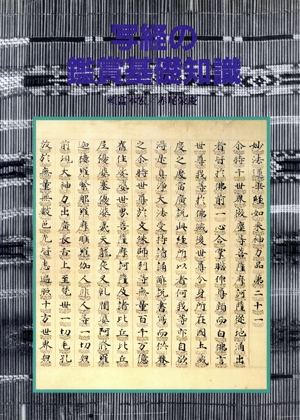 写経の
鑑賞基礎知識
頼富本宏／赤尾栄慶
妙法蓮華経如来神力品第二十一
尒時千世界微塵等菩薩摩訶薩従地涌出
者皆於佛前一心合掌瞻仰尊顔而白佛言
世尊我等於佛滅後世尊分身所在国土滅
度之處當廣説此経所以者何我等亦自欲
得是真浄大法受持讀誦解説書寫而供養
之尒時世尊於文殊師利等无量百千万億
舊住娑婆世界菩薩摩訶薩及諸比丘比丘
尼優婆塞優婆夷天龍夜叉乾闥婆阿脩羅
迦樓羅緊那羅摩睺羅伽人非人等一切衆
前現大神力出廣長舌上至梵世一切毛孔
放於无量无數色光皆悉遍照十方世界衆